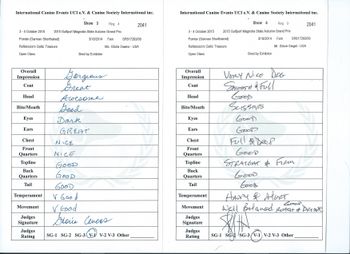 International Canine Events UCI e.V. & Canine Society International Inc.
Show 3 Ring 4 2041
3 - 4 October 2015 2015 Gulfport Magnolia State Autumn Grand Prix
Pointer (German Shorthaired) Fem
Reflexxion's Gellic Treasure Ms. Gisele Dwyer - USA
Open Class Bred by Exhibitor
Overall Impression Gorgeous
Coat Great
Head Awesome
Bite/Mouth Good
Eyes Dark
Ears GREAT
Chest NICE
Front Quarters NICE
Topline GOOD
Back Quarters GOOD
Tail GOOD
Temperament V Good
Movement V Good
Judges Signature
Judges Rating SG-1 SG-2 SG-3 V-1 V-2 V-3 Other
International Canine Events UCI e.V. & Canine Society International Inc.
Show 4 Ring 4 2041
3 - 4 October 2015 2015 Gulfport Magnolia State Autumn Grand Prix
Pointer (German Shorthaired) Fem
Reflexxion's Gellic Treasure USA
Open Class Bred by Exhibitor
Overall Impression VERY NICE DOG
Coat SMOOTH & Full
Head GOOD
Bite/Mouth SCISSORS
Eyes GOOD
Ears GOOD
Chest Full & DEEP
Front Quarters GOOD
Topline STRAIGHT & FIRM
Back Quarters GOOD
Tail GOOD
Temperament HAPPY & ALERT
Movement Well Balanced Good
Judges Signature
Judges Rating SG-1 SG-2 SG-3 V-1 V-2 V-3 Other